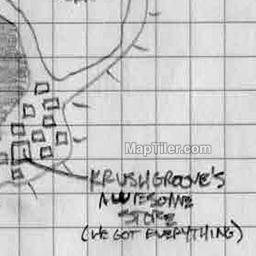 MapTiler.com
KRUSHGROOVE'S
AWESOME
STORE
(WE GOT EVERYTHING)